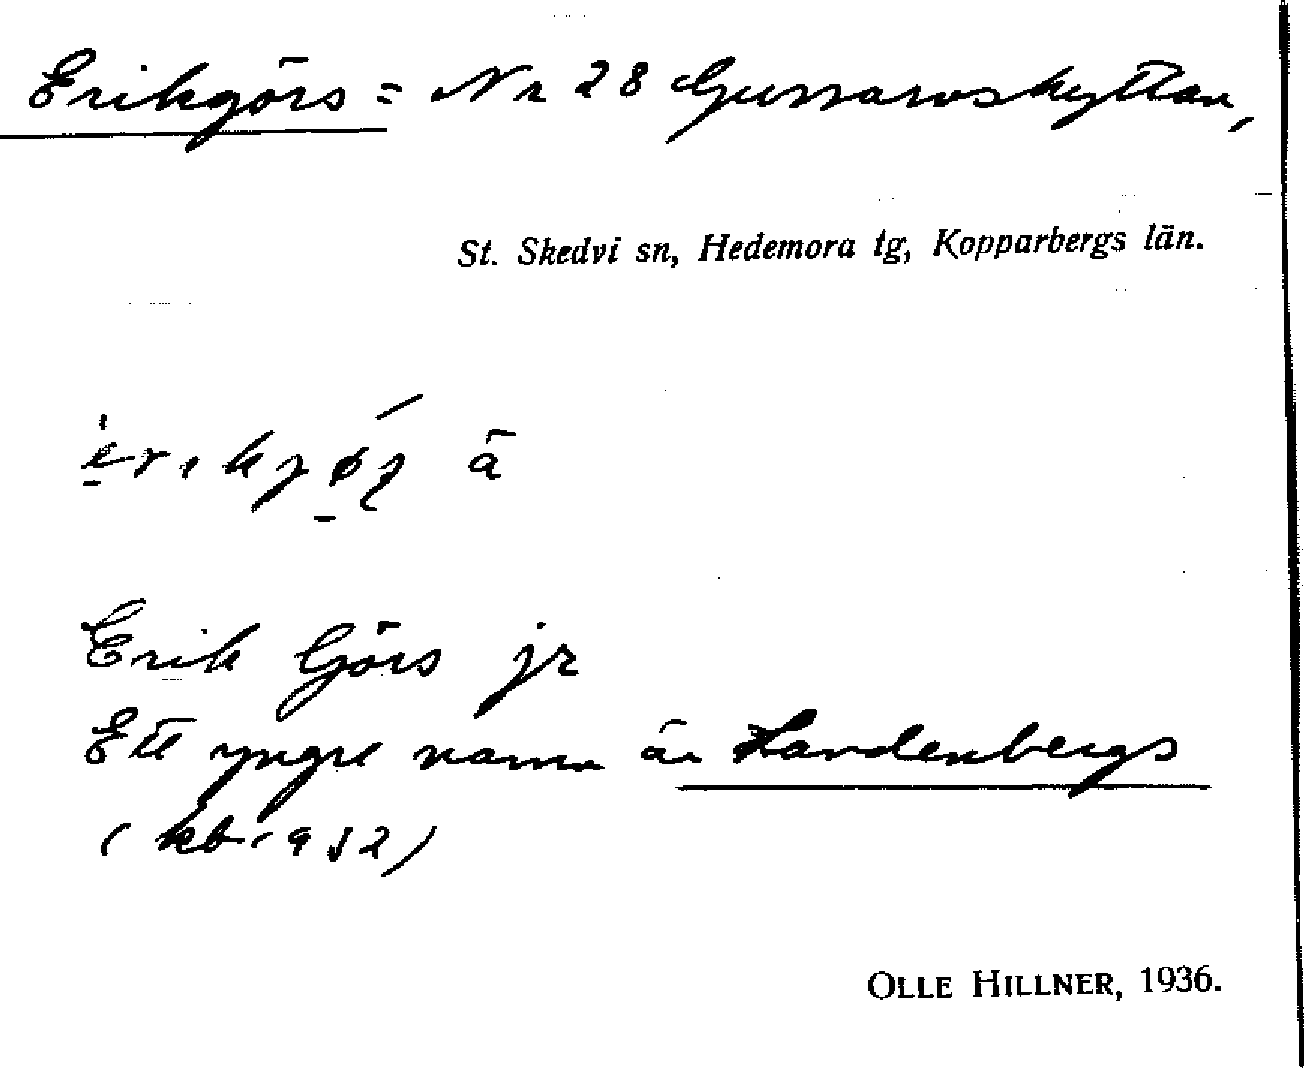 Erikgörs = Nr 28 Gussarvshyttan,
St. Skedvi sn, Hedemora tg, Kopparbergs län.
Erik Görs jr
Ett yngre namn är Landenbergs
(kb 1932)
OLLE HILLNER, 1936.